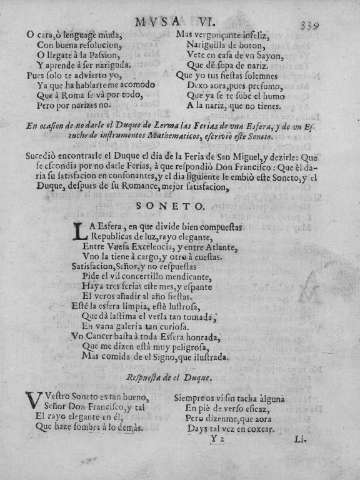 MVSA VI.
339
O cara, ò lenguage muda,
Con buena resolucion,
O llegate à la Passion,
Y aprende à ser nariguda.
Pues solo te advierto yo,
Ya que hablarte me acomodo
Que à Roma se và por todo,
Pero por narizes no.
Mas vergonçante infeliz,
Nariguilla de boton,
Vete en casa de vn Sayon,
Que dè sopa de nariz.
Que yo tus fiestas solemnes
Dexo aora, pues perfumo,
Que ya se te sube el humo
A la nariz, que no tienes.
En ocasion de no darle el Duque de Lerma las Ferias de vna Esfera, y de vn Es-
tuche de instrumentos Mathematicos, escrivió este Soneto.
Sucediò encontrarle el Duque el dia de la Feria de San Miguel, y dezirle: Que
se escondia por no darle Ferias, à que respondiò Don Francisco: Que èl da-
ria su satisfacion en consonantes, y el dia siguiente le embiò este Soneto, y el
Duque, despues de su Romance, mejor satisfacion,
SONETO.
LA Esfera, en que divide bien compuestas
Republicas de luz, rayo elegante,
Entre Vuesa Excelencia, y entre Atlante,
Vno la tiene à cargo, y otro à cuestas.
Satisfacion, Señor, y no respuestas
Pide el vil concertillo mendicante,
Haya tres ferias este mes, y espante
El veros añadir al año fiestas.
Estè la esfera limpia, estè lustrosa,
Que dà lastima el verla tan tomada,
En vana galeria tan curiosa.
Vn Cancer basta à toda Esfera honrada,
Que me dizen està muy peligrosa,
Mas comida de el Signo, que ilustrada.
Respuesta de el Duque.
VVestro Soneto es tan bueno,
Señor Don Francisco, y tal
El rayo elegante en èl,
Que haze sombra à lo demàs.
Siempre os vi sin tacha alguna
En piè de verso eficaz,
Pero dizenme, que aora
Days tal vez en coxear.
Y 2
Li-